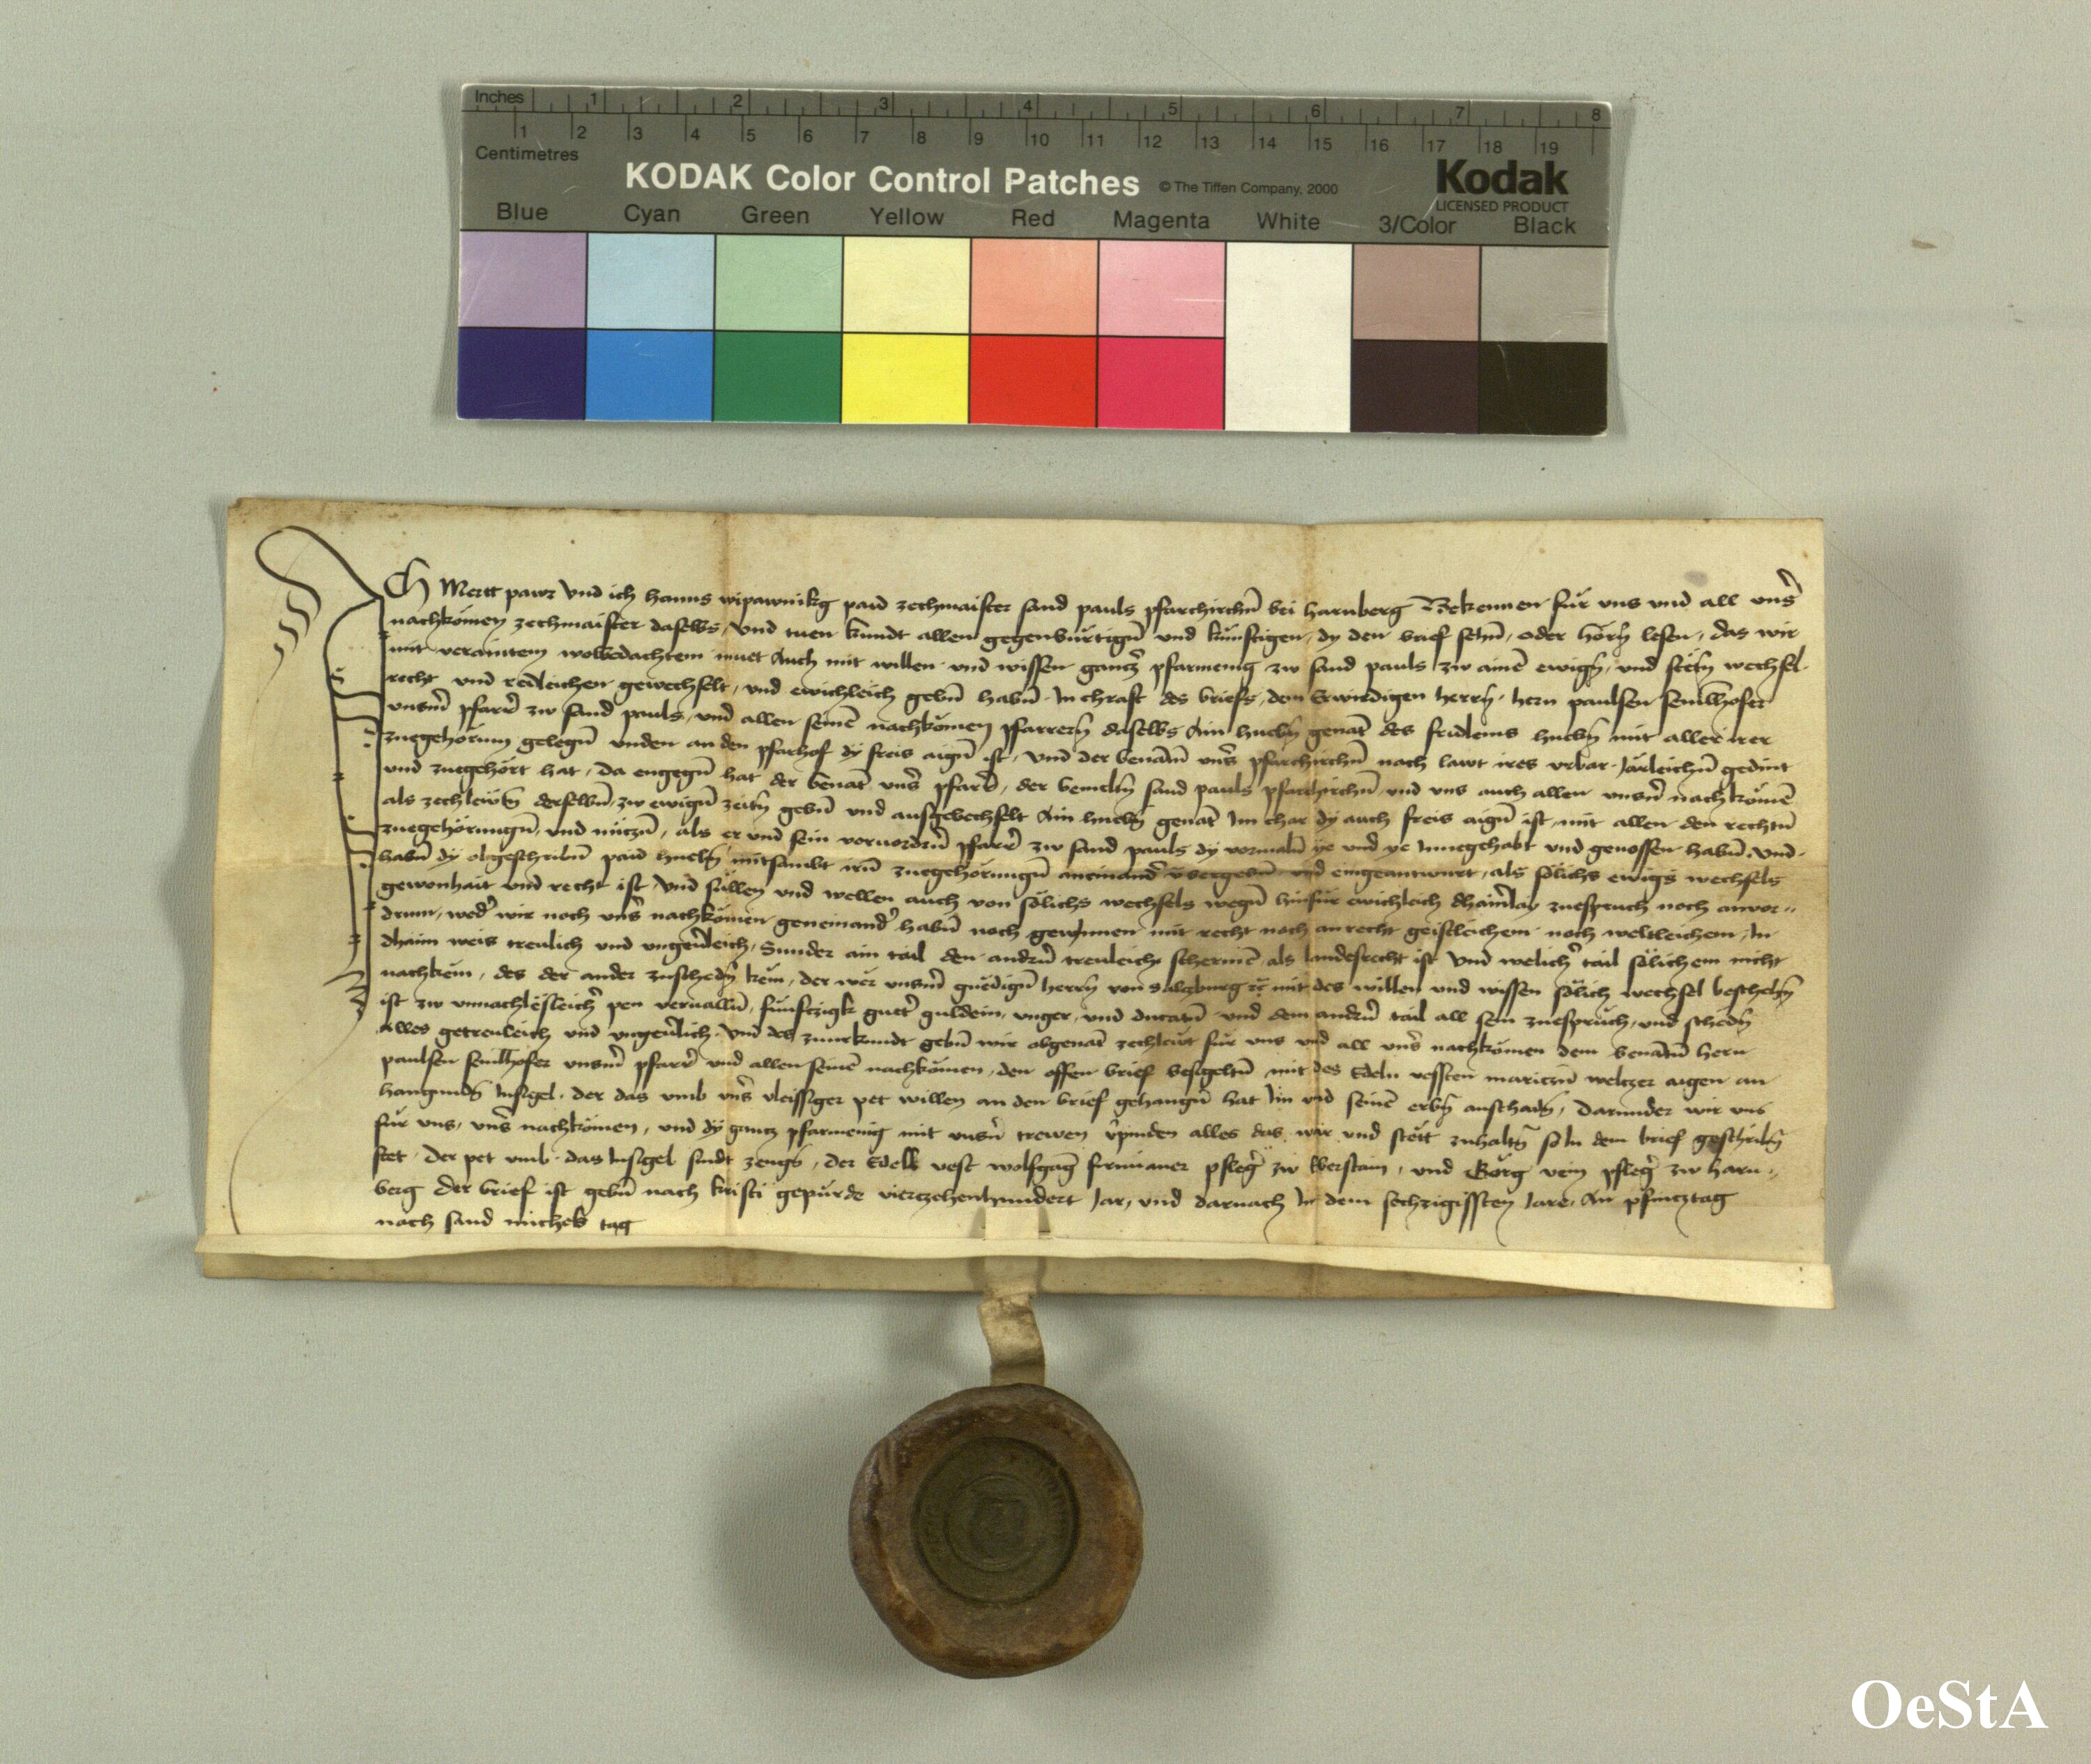 Inches 1 2 3 4 5 6 7 8
1 2 3 4 5 6 7 8 9 10 11 12 13 14 15 16 17 18 19
Centimetres
KODAK Color Control Patches © The Tiffen Company, 2000 Kodak
LICENSED PRODUCT
Blue Cyan Green Yellow Red Magenta White 3/Color Black
Ich Mertt pawr Vnd ich hanns wipawnikg paid zechmaister sand pauls pfarchirchn̄ bei harnberg Bekennen für vns vnd all vnsʼ
nachkömen zechmaister daselbs, Vnd tuen kundt allen gegenbürtign̄ vnd künftigen, dy den brief sehn̄, oder hörn̄ lesen, das wir
mit verainttem wolbedachtem muet Auch mit willen vnd wissen gantzʼ pfarmenig zw sand pauls zw ainē ewign̄, vnd stetn̄ wechsel
recht vnd redleichen gewechselt, vnd ewichleich gebn̄ habn̄ In chraft des briefs, dem Erwirdigen herrn̄, hern paulsen
vnsm̄ pfarrʼ zw sand pauls, vnd allen seinē nachkömen pfarrern̄ daselbs Ain huebn̄ genāt des fridleins huebn̄ mit aller irer
zuegehörung gelegn̄ vnden an den pfarhof dy freis aign̄ ist, vnd der benātn̄ vnsʼ pfarchirchn̄ nach lawt ires vrbar Järleichn̄ gedint
vnd zuegehört hat, da engegn̄ hat der benāt vnsʼ pfarrʼ, der bemeltn̄ sand pauls pfarchirchn̄ vnd vns auch allen vnsn̄ nachkömē
als zechlewtn̄ derselbn̄, zw ewign̄ zeitn̄ gebn̄ vnd aufgewechselt Ain huebn̄ genāt Im char dy auch freis aign̄ ist, mit allen den rechtn̄
zuegehörungn̄, vnd nützn̄, als er vnd sein voruordrn̄ pfarrʼ zw sand pauls dy vormaln̄ ye vnd ye Innegehabt vnd genossen habn̄, Vnd
habn̄ dy obgeschribn̄ paid huebn̄ mitsambt irn̄ zuegehörungn̄ aneinandʼ vbergebn̄ vnd eingeantwurt, als sölichs ewigs wechsels
gewonhait vnd recht ist Vnd süllen vnd wellen auch von sölichs wechsels wegn̄ hinfür ewichleich dhainʼlay zuespruch noch anvor=
drum, wedʼ wir noch vnsʼ nachkömen geneinandʼ habn̄ noch gewinnen mit recht noch an recht geistleichem noch weltleichem, In
dhain weis treulich vnd vngeuʼleich, Sunder ain tail den andrn̄ treuleich schermē als landesrecht ist Vnd welichʼ tail sölichem nicht
nachkem, des der ander zuschedn̄ kem, der wer vnsm̄ gnedign̄ herrn̄ von Salzburg mit des willen vnd wissen sölich wechsel beschehn̄
ist zw vnnachlesleichʼ pen veruallen, fünfczigk guetʼ guldein, vnger, vnd ducatn̄ vnd dem andrn̄ tail all sein zuesprüch, vnd schedn̄
Alles getreuleich vnd vngeuʼlich Vnd des zuurkundt gebn̄ wir obgenāt zechleut für vns vnd all vnsʼ nachkömen dem benātn̄ hern
paulsen vnsm̄ pfarrʼ vnd allen seinē nachkömen, den offen brief besigeltn̄ mit des Edeln vessten weltzer aigen an
hangundn̄ Insigel, der das vmb vnsʼ vleissiger pet willen an den brief gehangn̄ hat Im vnd seinē erbn̄ anschadn̄, darunder wir vns
für vns, vnsʼ nachkömen, vnd dy gantz pfarmenig mit vnsn̄ trewen vʼpinden alles das war vnd stett zuhaltn̄ so In dem brief geschribn̄
stet, Der pet vmb das Insigel sindt zeugn̄, der Edell vest wolfgang pflegʼ zw Werstain, vnd Görg pflegʼ zw harn=
berg Der brief ist gebn̄ nach kristi gepürde vierczehenhundert Jar, vnd darnach In dem sechzigissten Jare, An pfincztag
nach sand michels tag
OeStA